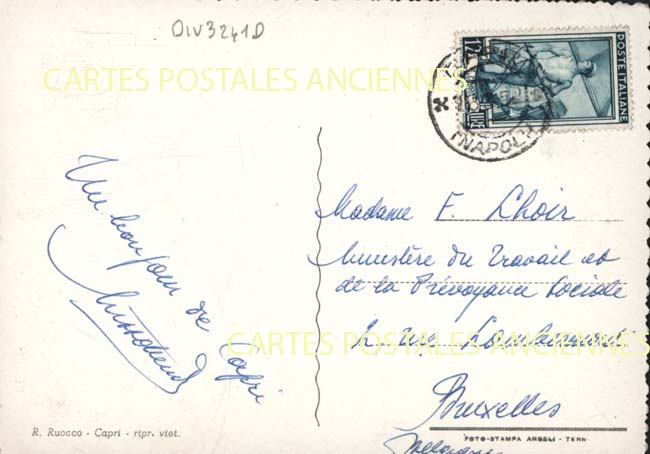 DIV3241D
CARTES POSTALES ANCIENNES
POSTE ITALIANE
12
LIRE
(NAPOLI)
Un bonjour de
Capri
Madame F. Lhoir
Ministère du Travail et
de la Prévoyance Sociale
2, rue
CARTES POSTALES ANCIENNES
Bruxelles
Belgique
R. Ruocco - Capri - ripr. viet.
FOTO-STAMPA ANGELI - TERNI